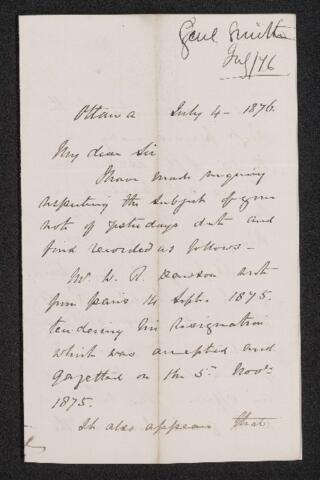 Genl Smith
Jul/76
Ottawa July 4 - 1876.
My dear Sir
I have made enquiry
respecting the subject of your
note of yesterdays date and
find recorded as follows -
Mr. W. R. Dawson sent
from paris 14 Sept. 1875.
tendering his resignation
which was accepted and
gazetted on the 5th Novr.
1875.
It also appears that